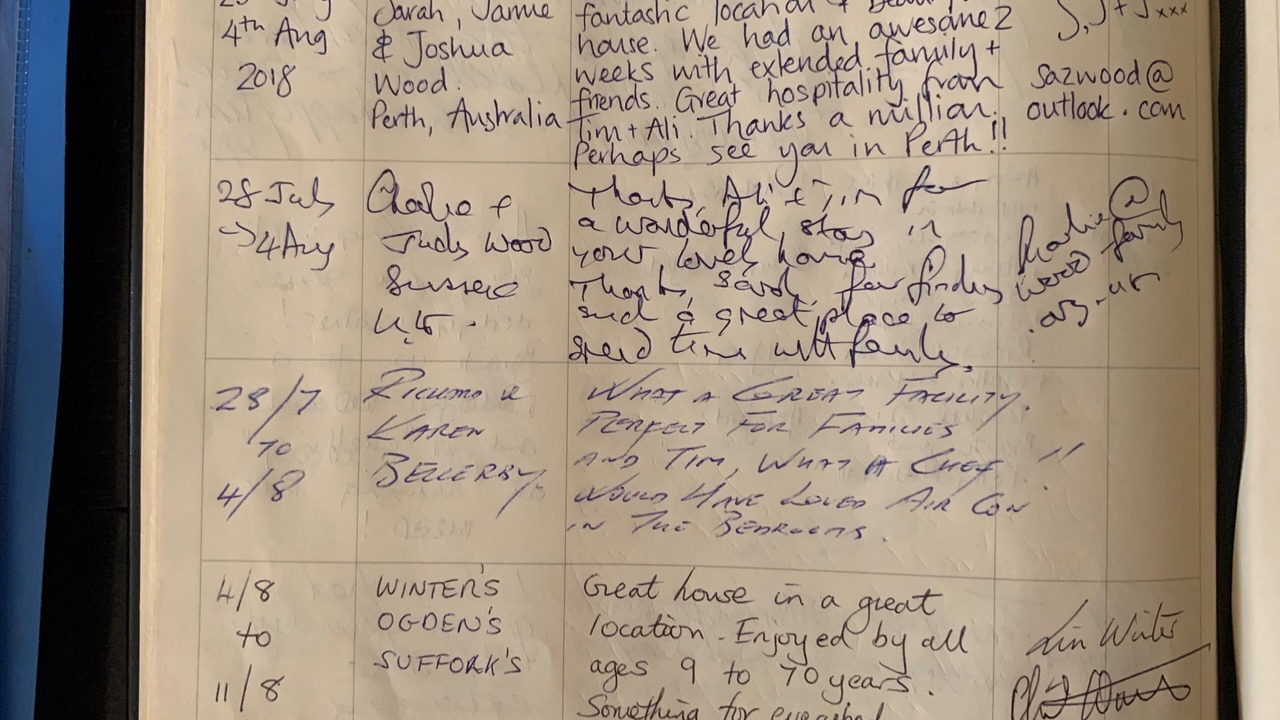 4th Aug
2018
Sarah, Jamie
& Joshua
Wood.
Perth, Australia
fantastic location
house. We had an awesome 2
weeks with extended family +
friends. Great hospitality from
Tim + Ali. Thanks a million.
Perhaps see you in Perth!!
J, J + J xxx
sazwood@
outlook.com
28 July
→ 4 Aug
Charlie +
Judy Wood
Sussex
U.K.
Thanks, Ali & Tim for
a wonderful stay in
your lovely house
Thanks, Sarah, for finding
such a great place to
spend time with family.
charlie@
wood family
.org.uk
28/7
TO
4/8
RICHARD &
KAREN
BELLERBY.
WHAT A GREAT FACILITY.
PERFECT FOR FAMILIES
AND TIM, WHAT A CHEF!!
WOULD HAVE LOVED AIR CON
IN THE BEDROOMS.
4/8
to
11/8
WINTER'S
OGDEN'S
SUFFORK'S
Great house in a great
location. Enjoyed by all
ages 9 to 70 years.
Something for everybody
Lin Winter